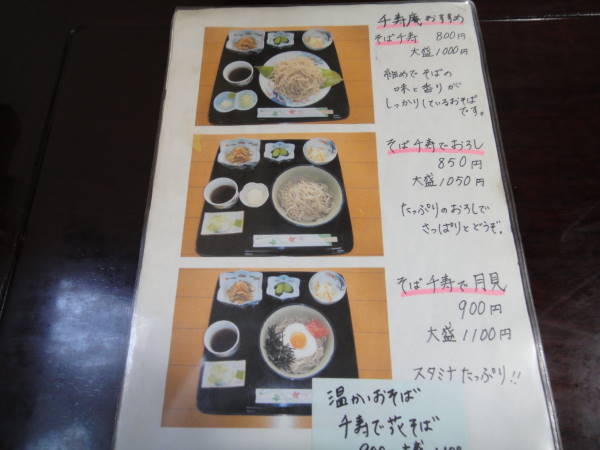 千寿庵おすすめ
そば千寿 800円
大盛1000円
細めでそばの
味と香りが
しっかりしているおそば
です。
そば千寿でおろし
850円
大盛1050円
たっぷりのおろしで
さっぱりとどうぞ。
そば千寿で月見
900円
大盛1100円
スタミナたっぷり!!
温かいおそば
千寿で花そば